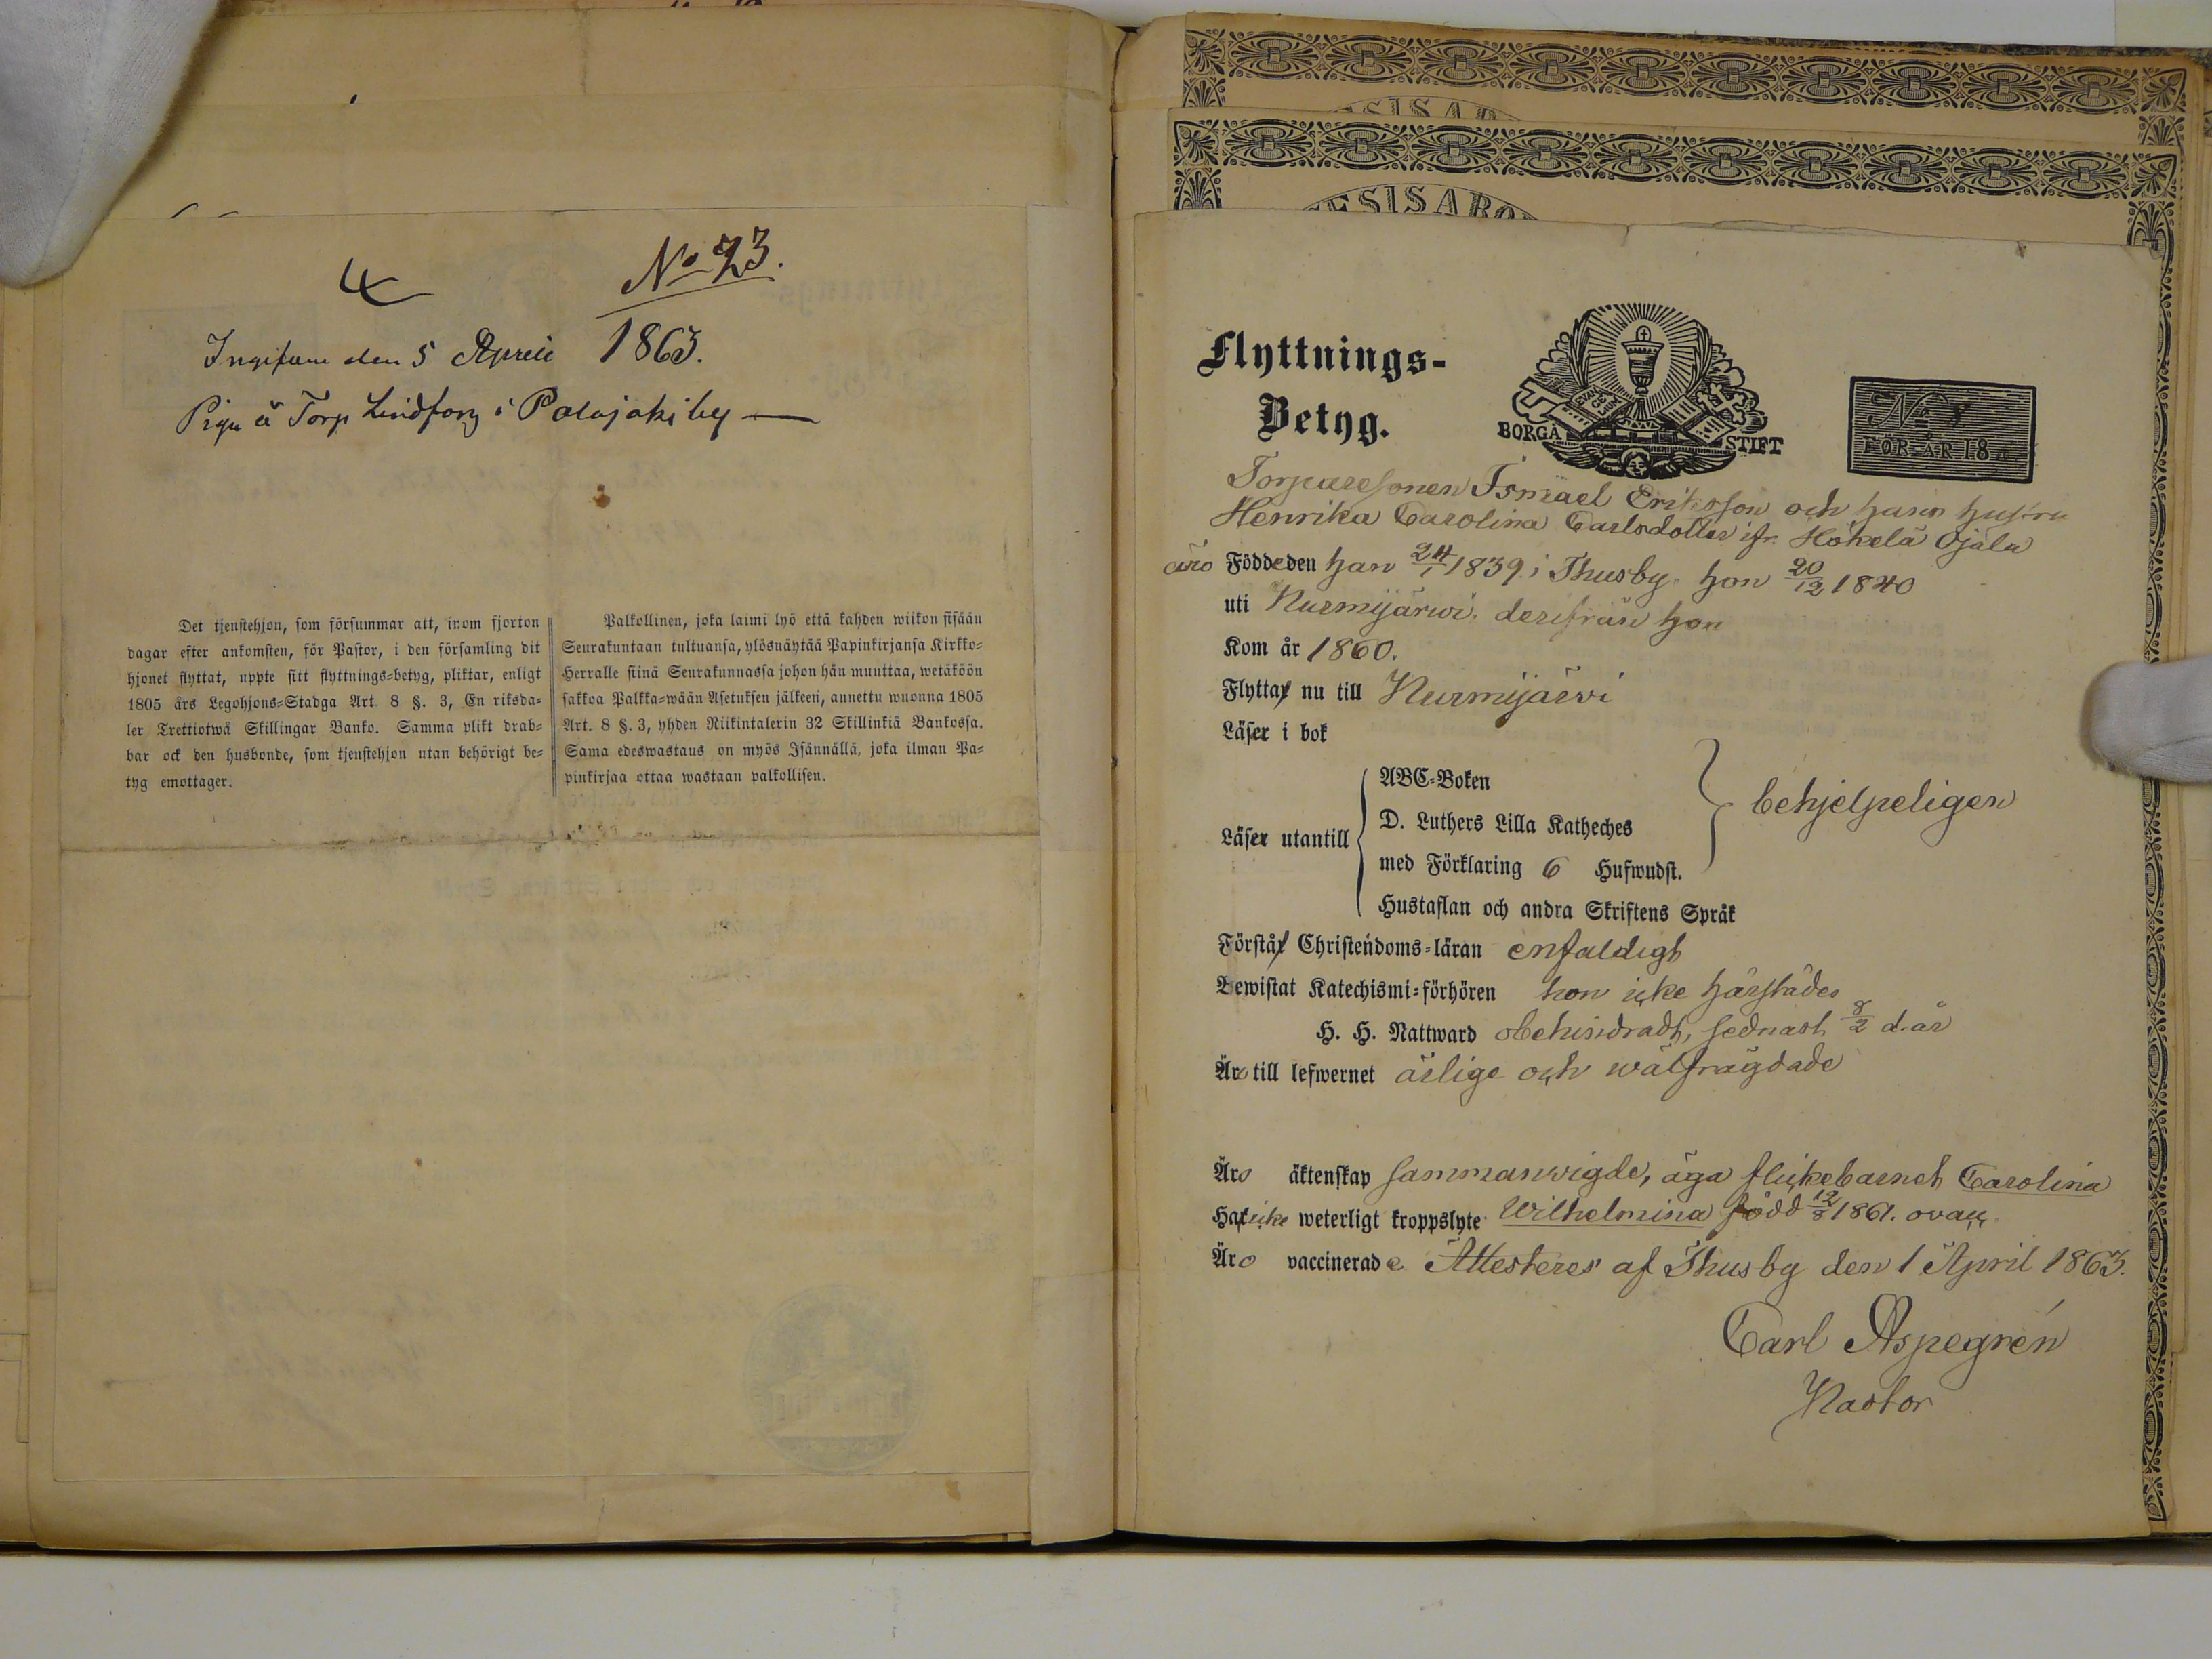 4
No 73.
Ingifven den 5 April 1863.
Piga å Torp Lindfors i Palojoki by —
Det tjenstehjon, som försummar att, inom fjorton
dagar efter ankomsten, för Pastor, i den församling dit
hjonet flyttat, uppte sitt flyttnings-betyg, pliktar, enligt
1805 års Legohjons-Stadga Art. 8 §. 3, En riksda-
ler Trettiotwå Skillingar Banko. Samma plikt drab-
bar ock den husbonde, som tjenstehjon utan behörigt be-
tyg emottager.
Palkollinen, joka laimi lyö että kahden wiikon sisään
Seurakuntaan tultuansa, ylösnäytää Papinkirjansa Kirkko-
Herralle siinä Seurakunnassa johon hän muuttaa, wetäköön
sakkoa Palkka-wään Asetuksen jälkeen, annettu wuonna 1805
Art. 8 §. 3, yhden Riikintalerin 32 Skillinkiä Bankossa.
Sama edeswastaus on myös Isännällä, joka ilman Pa-
pinkirjaa ottaa wastaan palkollisen.
Flyttnings-
Betyg.
EVAN
GE
LIUM
BORGÅ STIFT
No 8
FÖR ÅR 18
Torparesonen Ismael Eriksson och hans hustru
Henrika Carolina Carlsdotter ifr. Hökelä Ojala
äro Födde den han 24/1 1839 i Thusby hon 20/12 1840
uti Nurmijärwi. derifrån hon
Kom år 1860.
Flytta nu till Nurmijärwi
Läser i bok
Läser utantill
ABC-Boken
D. Luthers Lilla Katheches
med Förklaring 6 Hufwudst.
Hustaflan och andra Skriftens Språk
behjelpeligen
Förstå Christendoms-läran enfaldigt
Bewistat Katechismi-förhören hon icke härstädes
H. H. Nattward obehindradt, sednast 8/2 d. år
Äro till lefwernet ärlige och wälfrägdade
Äro äktenskap sammanwigde, äga flickebarnet Carolina
Haf icke weterligt kroppslyte Wilhelmina född 12/8 1861. ovac.
Äro vaccinerade Attesteres af Thusby den 1 April 1863.
Carl Aspegrén
Pastor